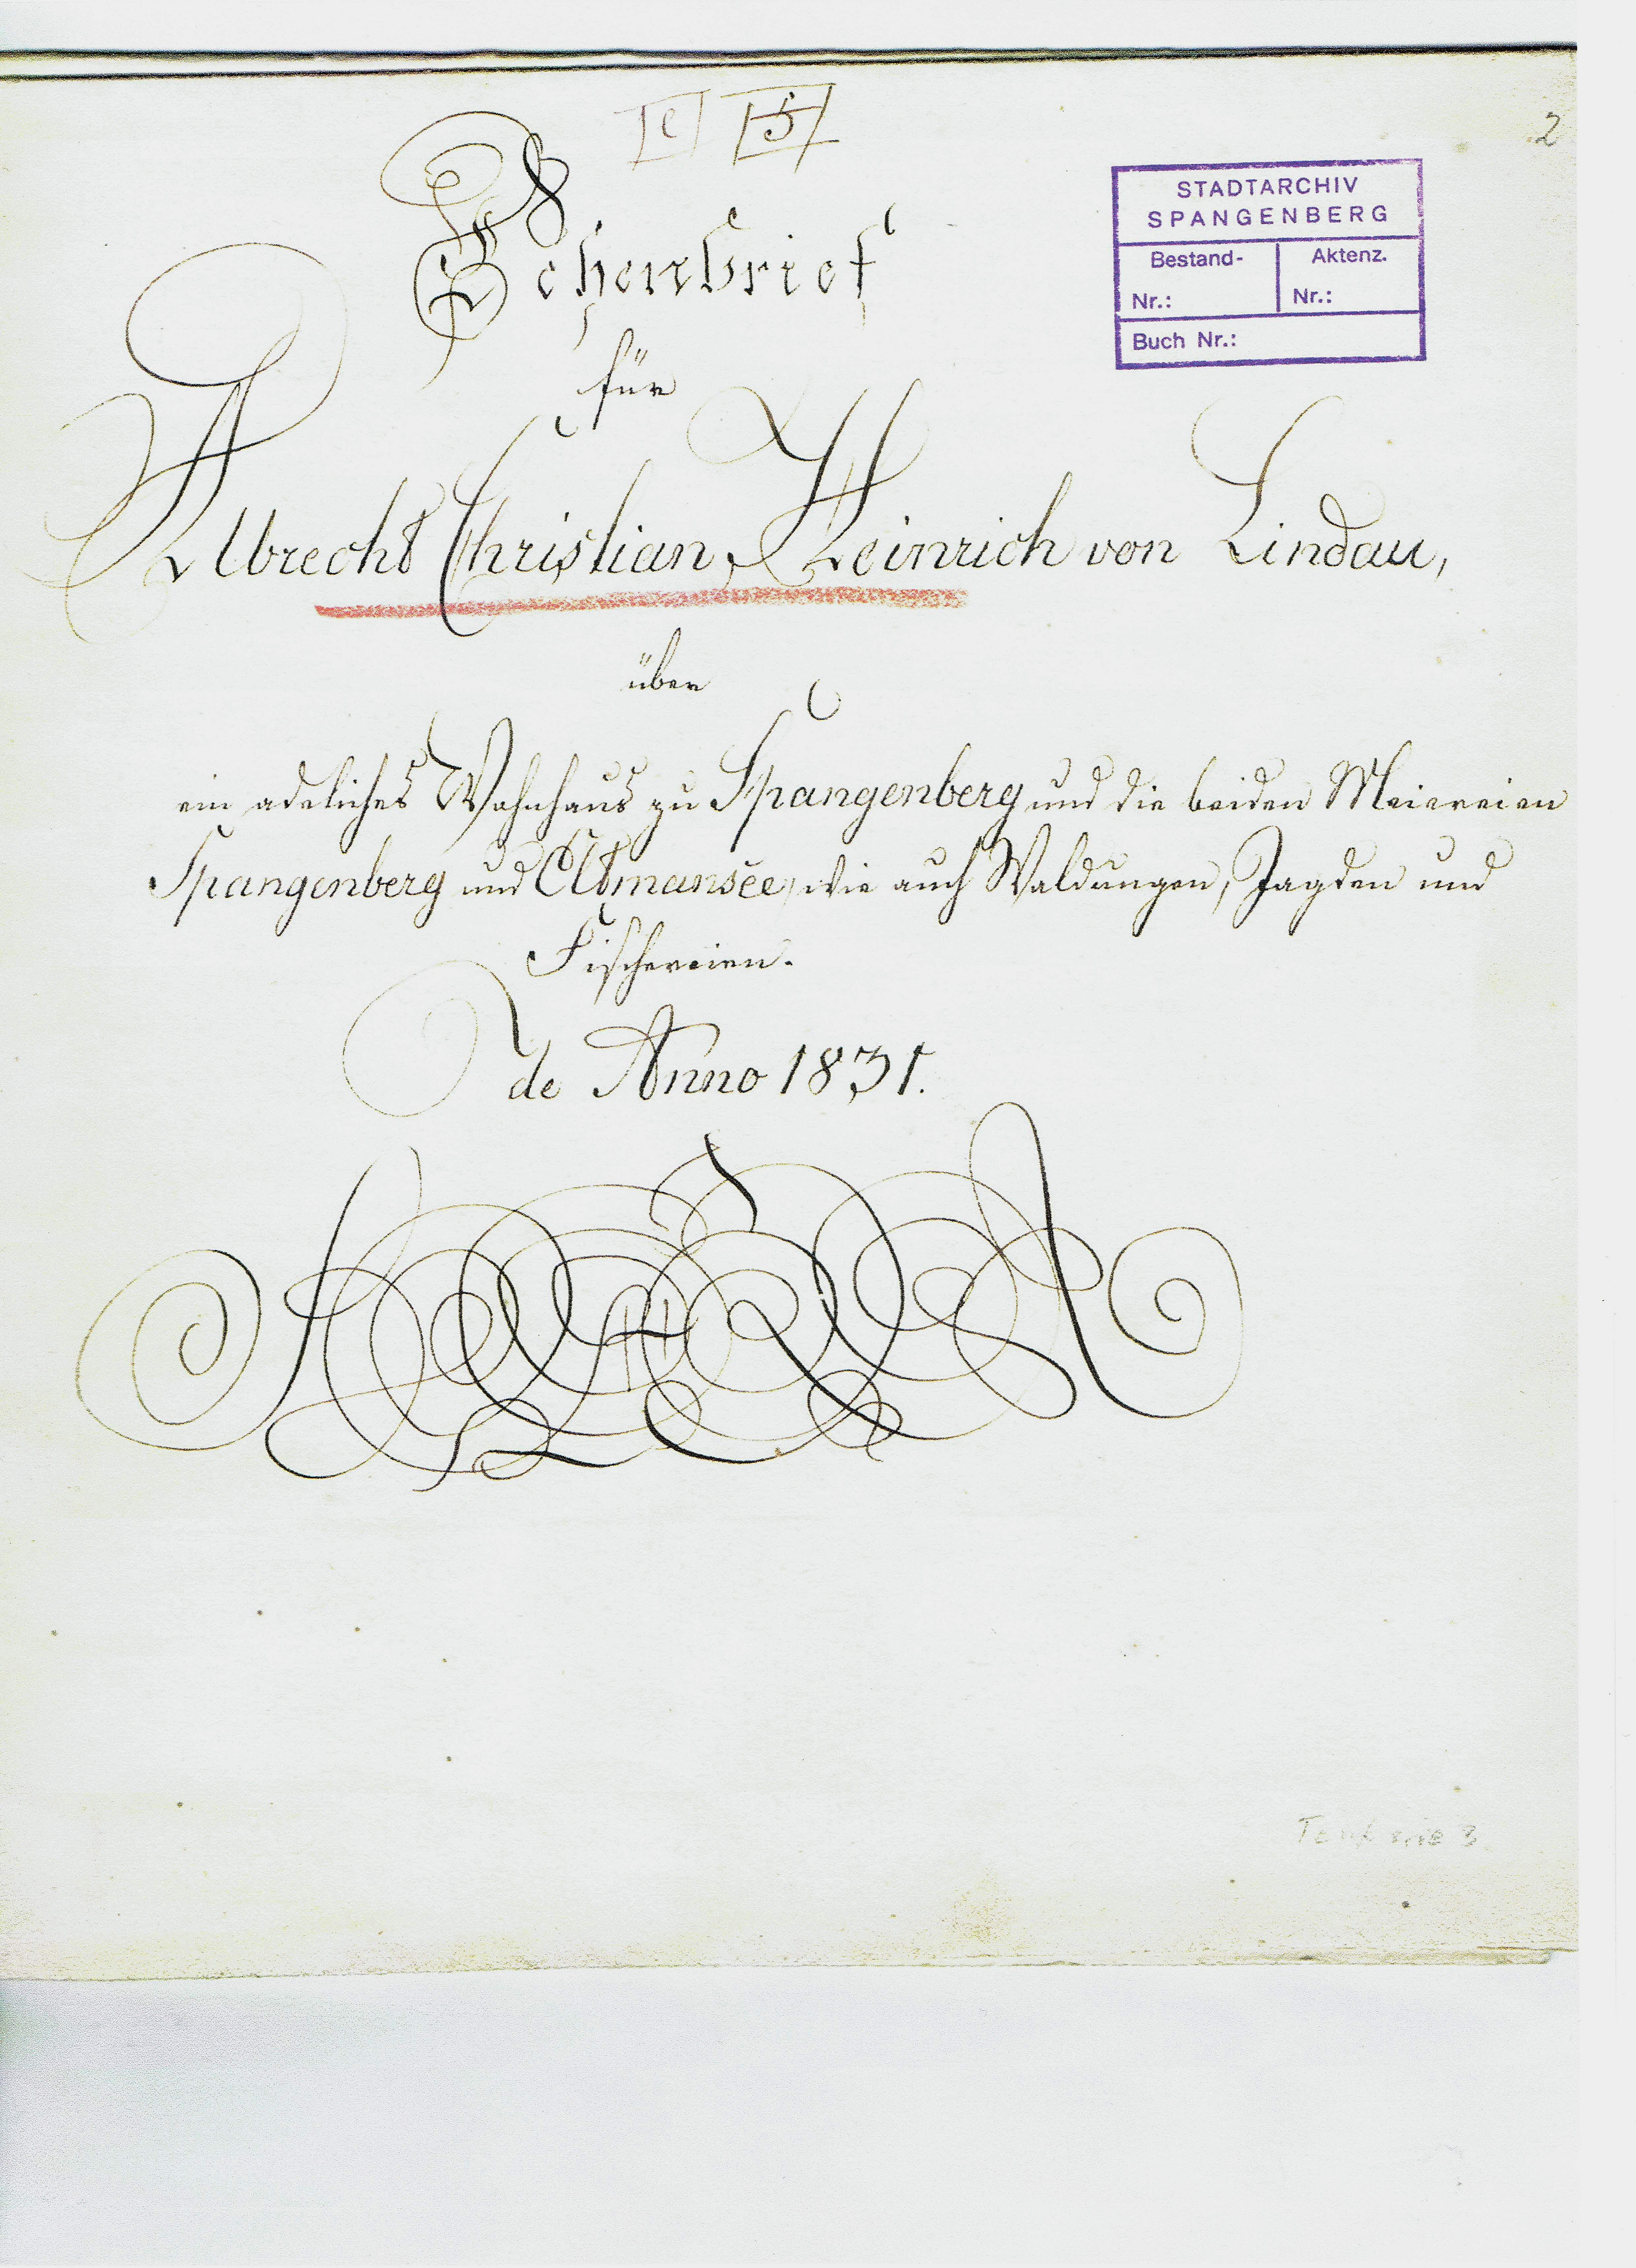 2
STADTARCHIV
SPANGENBERG
Bestand-
Nr.:
Aktenz.
Nr.:
Buch Nr.:
Lehenbrief
für
Albrecht Christian Heinrich von Lindau,
über
ein adeliches Wohnhaus zu Spangenberg und die beiden Meiereien
Spangenberg und wie auch Waldungen, Jagden und
Fischereien.
de Anno 1831.